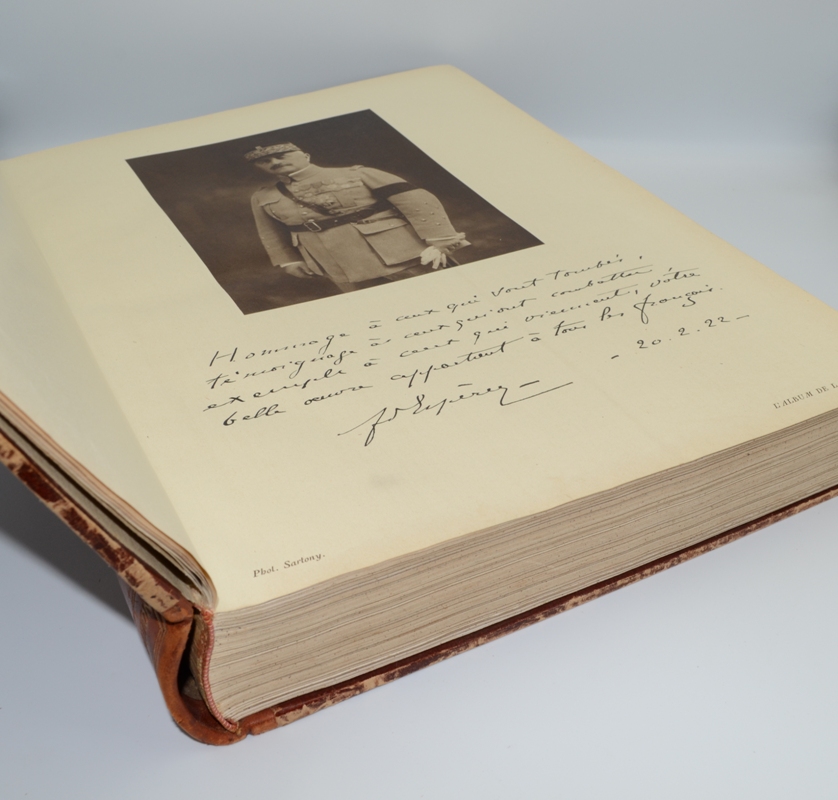 Hommage à ceux qui sont tombés,
témoignage à ceux qui ont combattu
exemple à ceux qui viennent, votre
belle œuvre appartient à tous les français.
- 20.2.22 -
Phot. Sartony.
L'ALBUM DE L